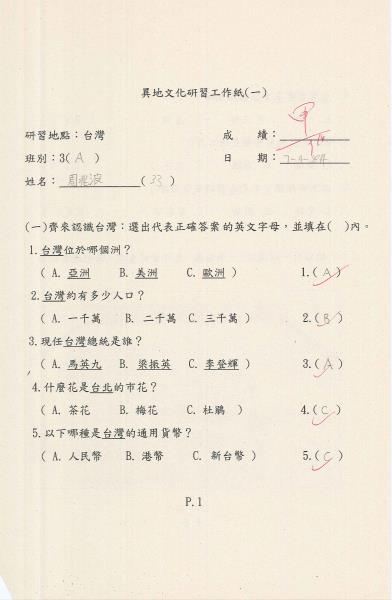 異地文化研習工作紙(一)
研習地點：台灣 成 績：甲
班別：3( A ) 日 期：7-4-
姓名： ( 33 )
(一)齊來認識台灣：選出代表正確答案的英文字母，並填在( )內。
1.台灣位於哪個洲？
( A. 亞洲 B. 美洲 C. 歐洲 ) 1.( A )
2.台灣約有多少人口？
( A. 一千萬 B. 二千萬 C. 三千萬 ) 2.( B )
3.現任台灣總統是誰？
( A. 馬英九 B. 梁振英 C. 李登輝 ) 3.( A )
4.什麼花是台北的市花？
( A. 茶花 B. 梅花 C. 杜鵑 ) 4.( C )
5.以下哪種是台灣的通用貨幣？
( A. 人民幣 B. 港幣 C. 新台幣 ) 5.( C )
P.1